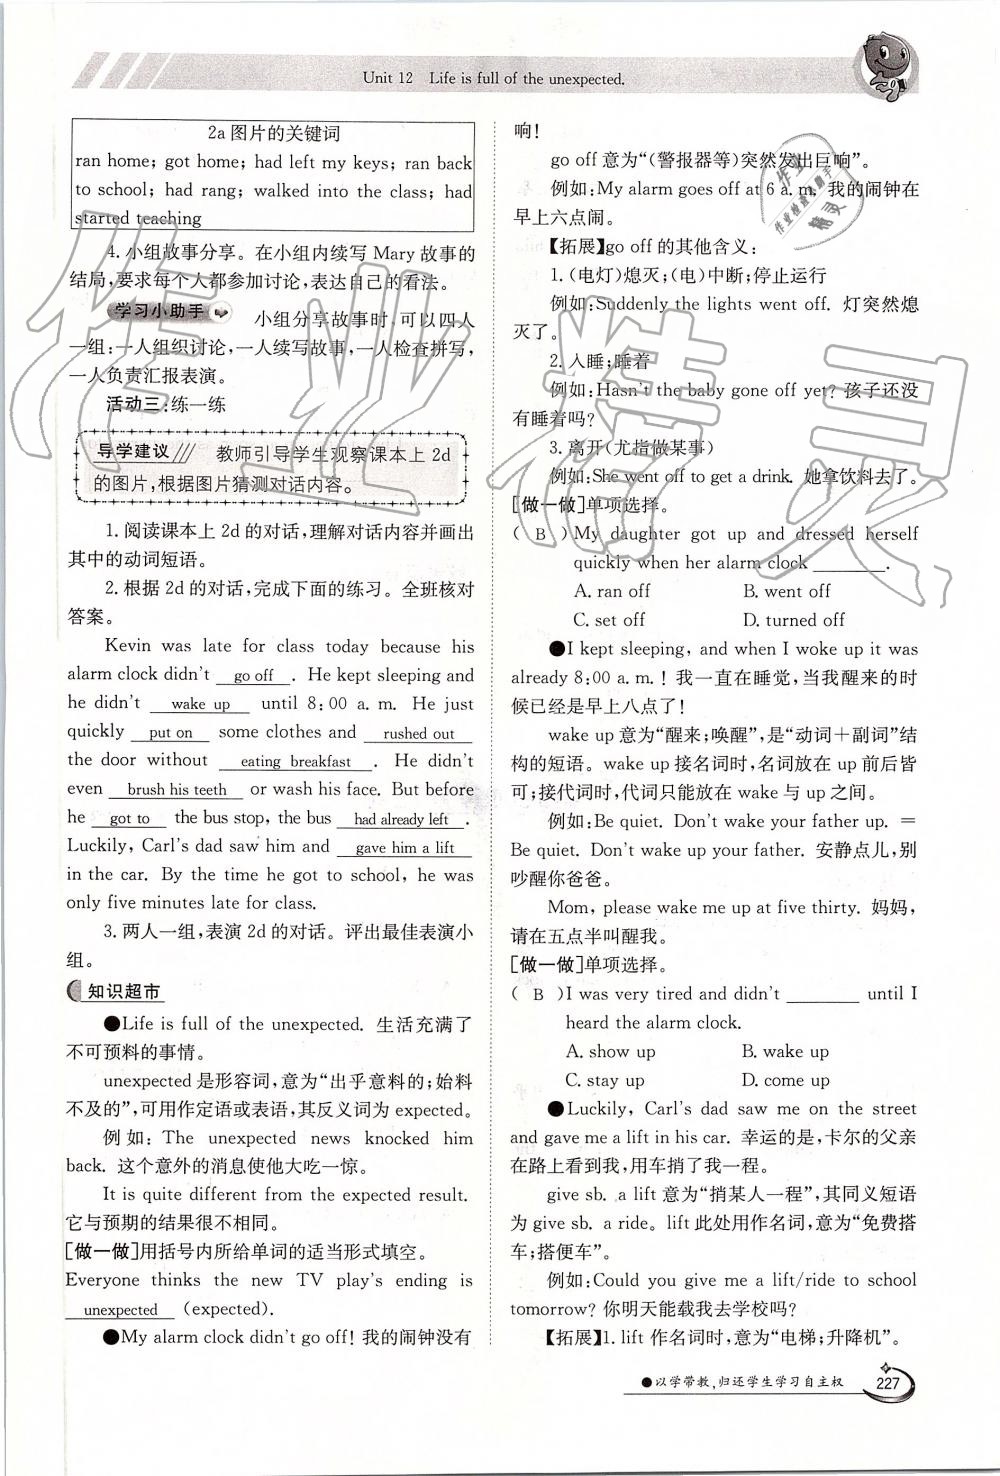 Unit 12 Life is full of the unexpected.
2a 图片的关键词
ran home; got home; had left my keys; ran back
to school; had rang; walked into the class; had
started teaching
4. 小组故事分享。在小组内续写 Mary 故事的
结局,要求每个人都参加讨论,表达自己的看法。
学习小助手 小组分享故事时,可以四人
一组:一人组织讨论,一人续写故事,一人检查拼写,
一人负责汇报表演。
活动三:练一练
导学建议 教师引导学生观察课本上 2d
的图片,根据图片猜测对话内容。
1. 阅读课本上 2d 的对话,理解对话内容并画出
其中的动词短语。
2. 根据 2d 的对话,完成下面的练习。全班核对
答案。
Kevin was late for class today because his
alarm clock didn't go off . He kept sleeping and
he didn't wake up until 8:00 a. m. He just
quickly put on some clothes and rushed out
the door without eating breakfast . He didn't
even brush his teeth or wash his face. But before
he got to the bus stop, the bus had already left .
Luckily, Carl's dad saw him and gave him a lift
in the car. By the time he got to school, he was
only five minutes late for class.
3. 两人一组,表演 2d 的对话。评出最佳表演小
组。
知识超市
●Life is full of the unexpected. 生活充满了
不可预料的事情。
unexpected 是形容词,意为“出乎意料的;始料
不及的”,可用作定语或表语,其反义词为 expected。
例如: The unexpected news knocked him
back. 这个意外的消息使他大吃一惊。
It is quite different from the expected result.
它与预期的结果很不相同。
[做一做]用括号内所给单词的适当形式填空。
Everyone thinks the new TV play's ending is
unexpected (expected).
●My alarm clock didn't go off! 我的闹钟没有
响!
go off 意为“(警报器等)突然发出巨响”。
例如:My alarm goes off at 6 a. m. 我的闹钟在
早上六点闹。
【拓展】go off 的其他含义:
1. (电灯)熄灭;(电)中断;停止运行
例如:Suddenly the lights went off. 灯突然熄
灭了。
2. 入睡;睡着
例如:Hasn't the baby gone off yet? 孩子还没
有睡着吗?
3. 离开(尤指做某事)
例如:She went off to get a drink. 她拿饮料去了。
[做一做]单项选择。
( B )My daughter got up and dressed herself
quickly when her alarm clock ________.
A. ran off B. went off
C. set off D. turned off
●I kept sleeping, and when I woke up it was
already 8:00 a. m. ! 我一直在睡觉,当我醒来的时
候已经是早上八点了!
wake up 意为“醒来;唤醒”,是“动词+副词”结
构的短语。wake up 接名词时,名词放在 up 前后皆
可;接代词时,代词只能放在 wake 与 up 之间。
例如:Be quiet. Don't wake your father up. =
Be quiet. Don't wake up your father. 安静点儿,别
吵醒你爸爸。
Mom, please wake me up at five thirty. 妈妈,
请在五点半叫醒我。
[做一做]单项选择。
( B )I was very tired and didn't ________ until I
heard the alarm clock.
A. show up B. wake up
C. stay up D. come up
●Luckily, Carl's dad saw me on the street
and gave me a lift in his car. 幸运的是,卡尔的父亲
在路上看到我,用车捎了我一程。
give sb. a lift 意为“捎某人一程”,其同义短语
为 give sb. a ride。lift 此处用作名词,意为“免费搭
车;搭便车”。
例如:Could you give me a lift/ride to school
tomorrow? 你明天能载我去学校吗?
【拓展】1. lift 作名词时,意为“电梯;升降机”。
●以学带教,归还学生学习自主权
227
作业精灵